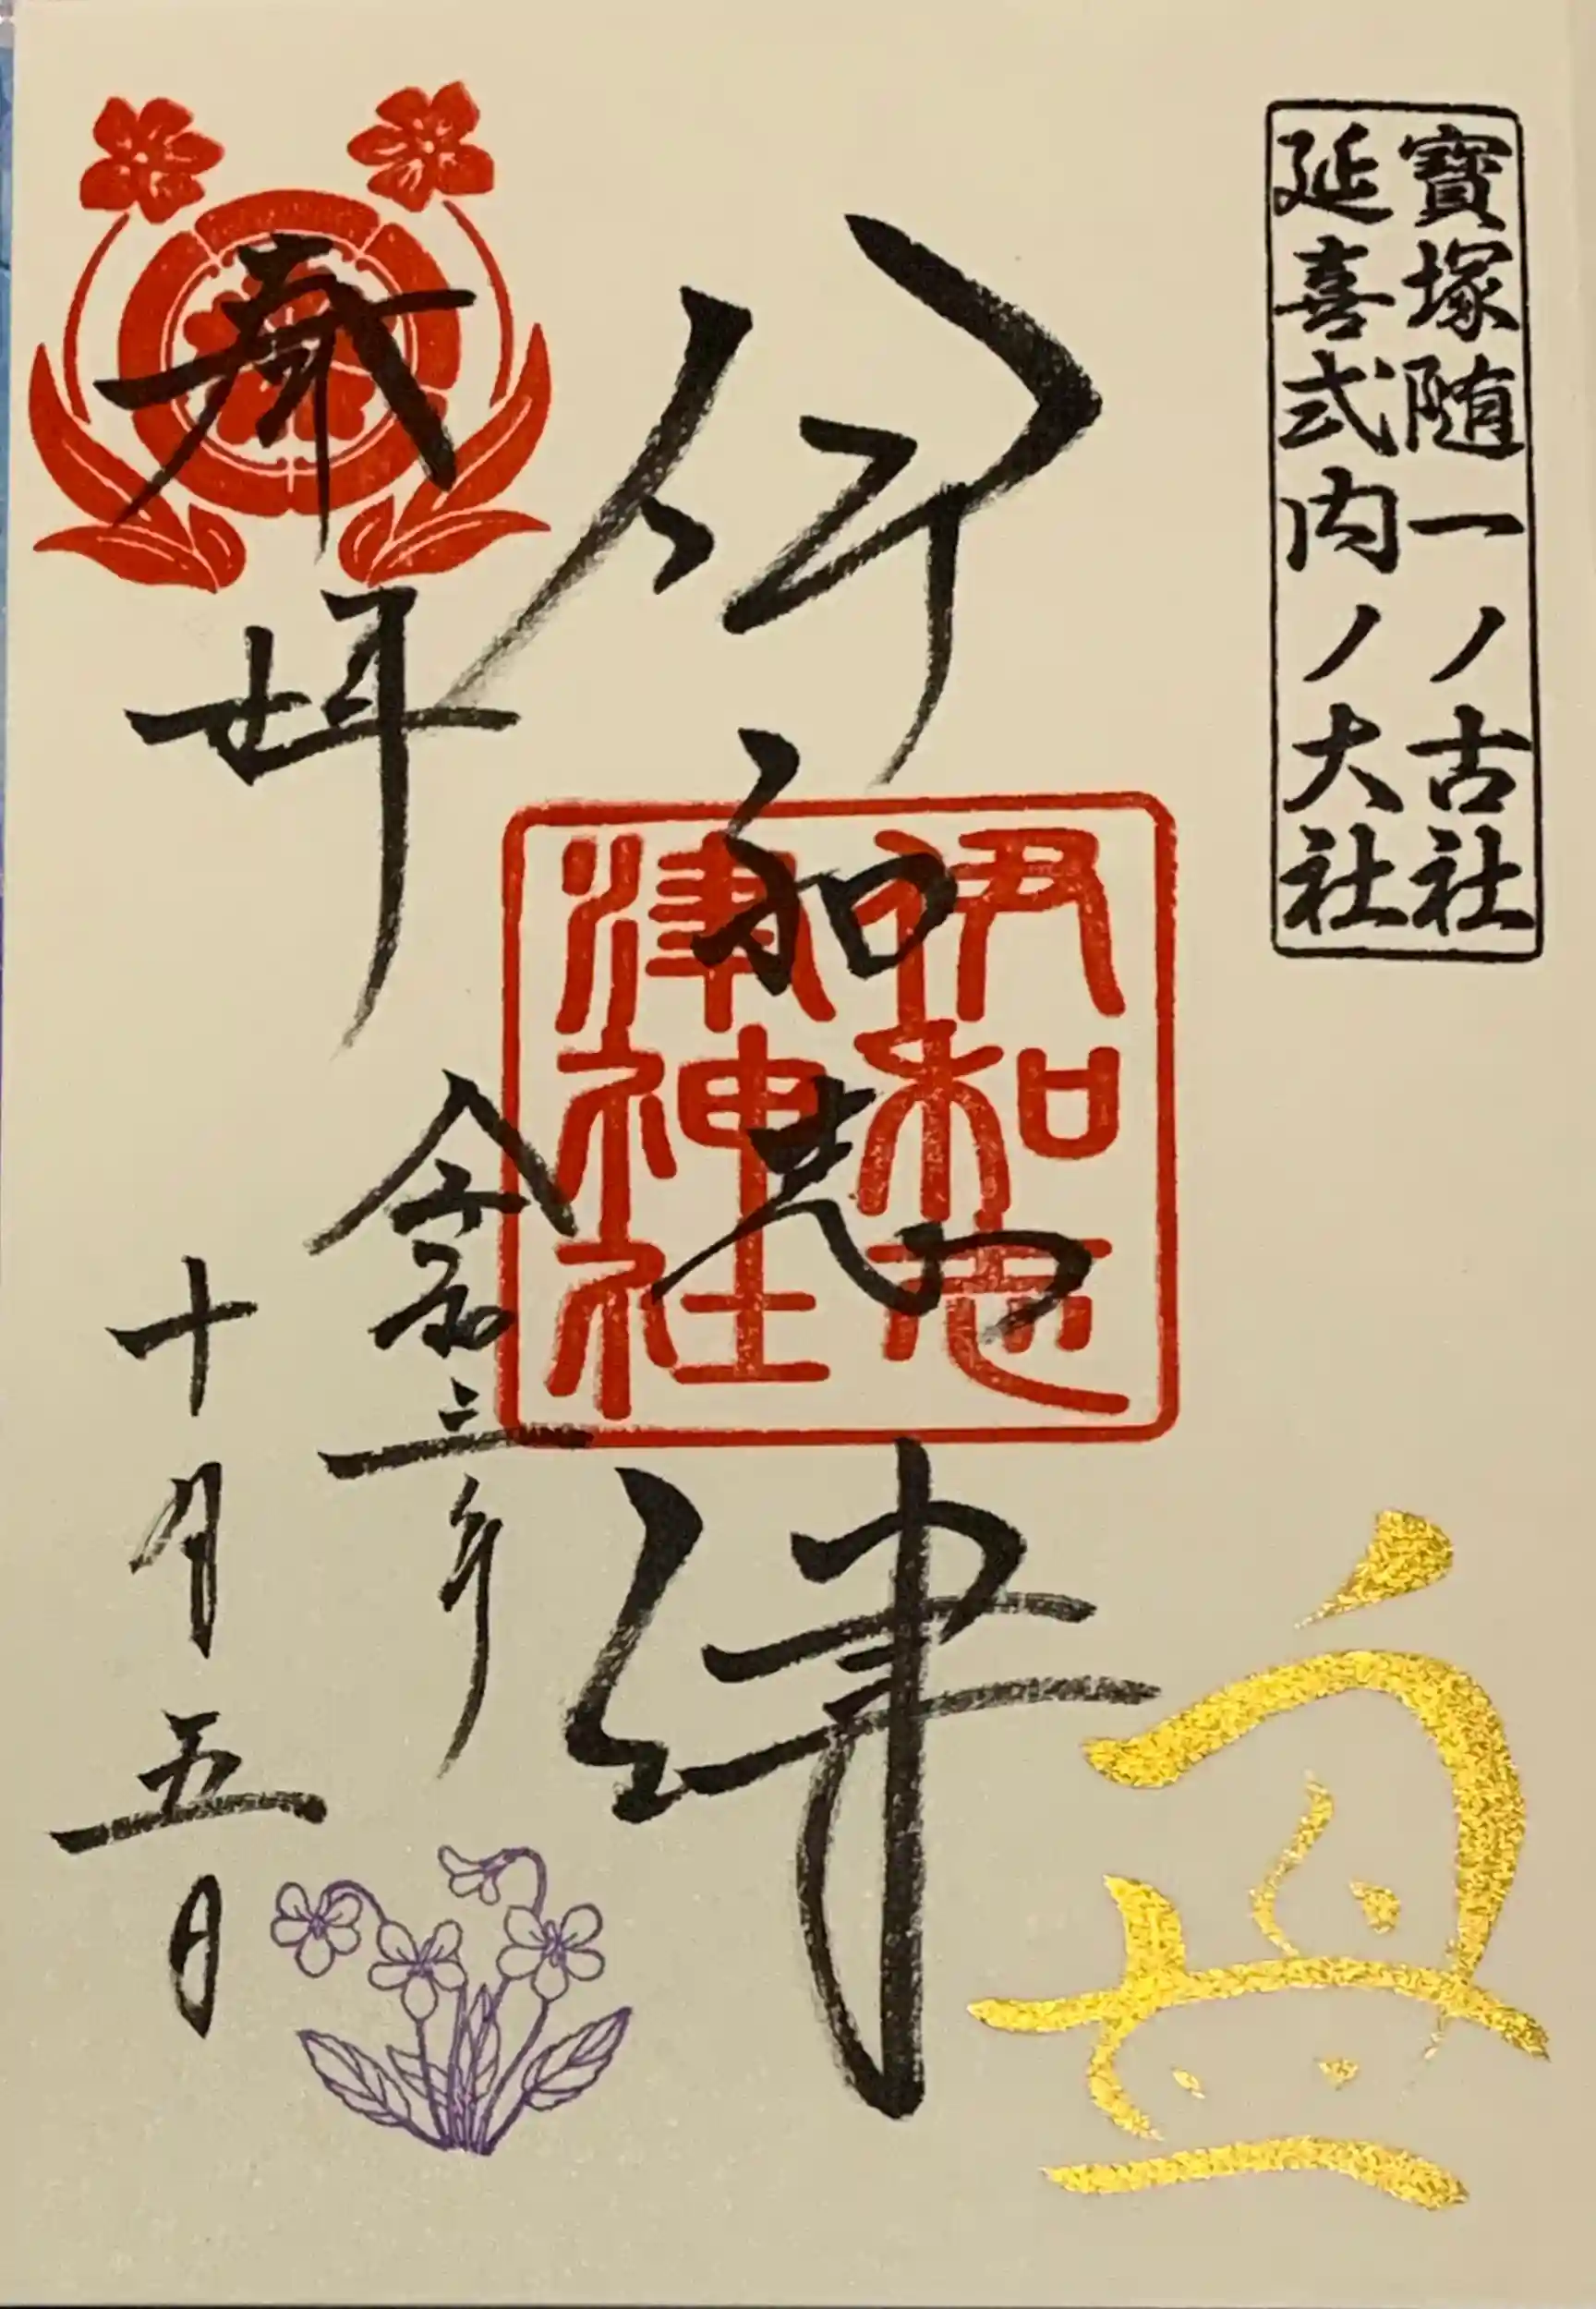 寶塚随一ノ古社
延喜式内ノ大社
伊和志津
伊和志
津神社
奉拝
令和三年
十月五日